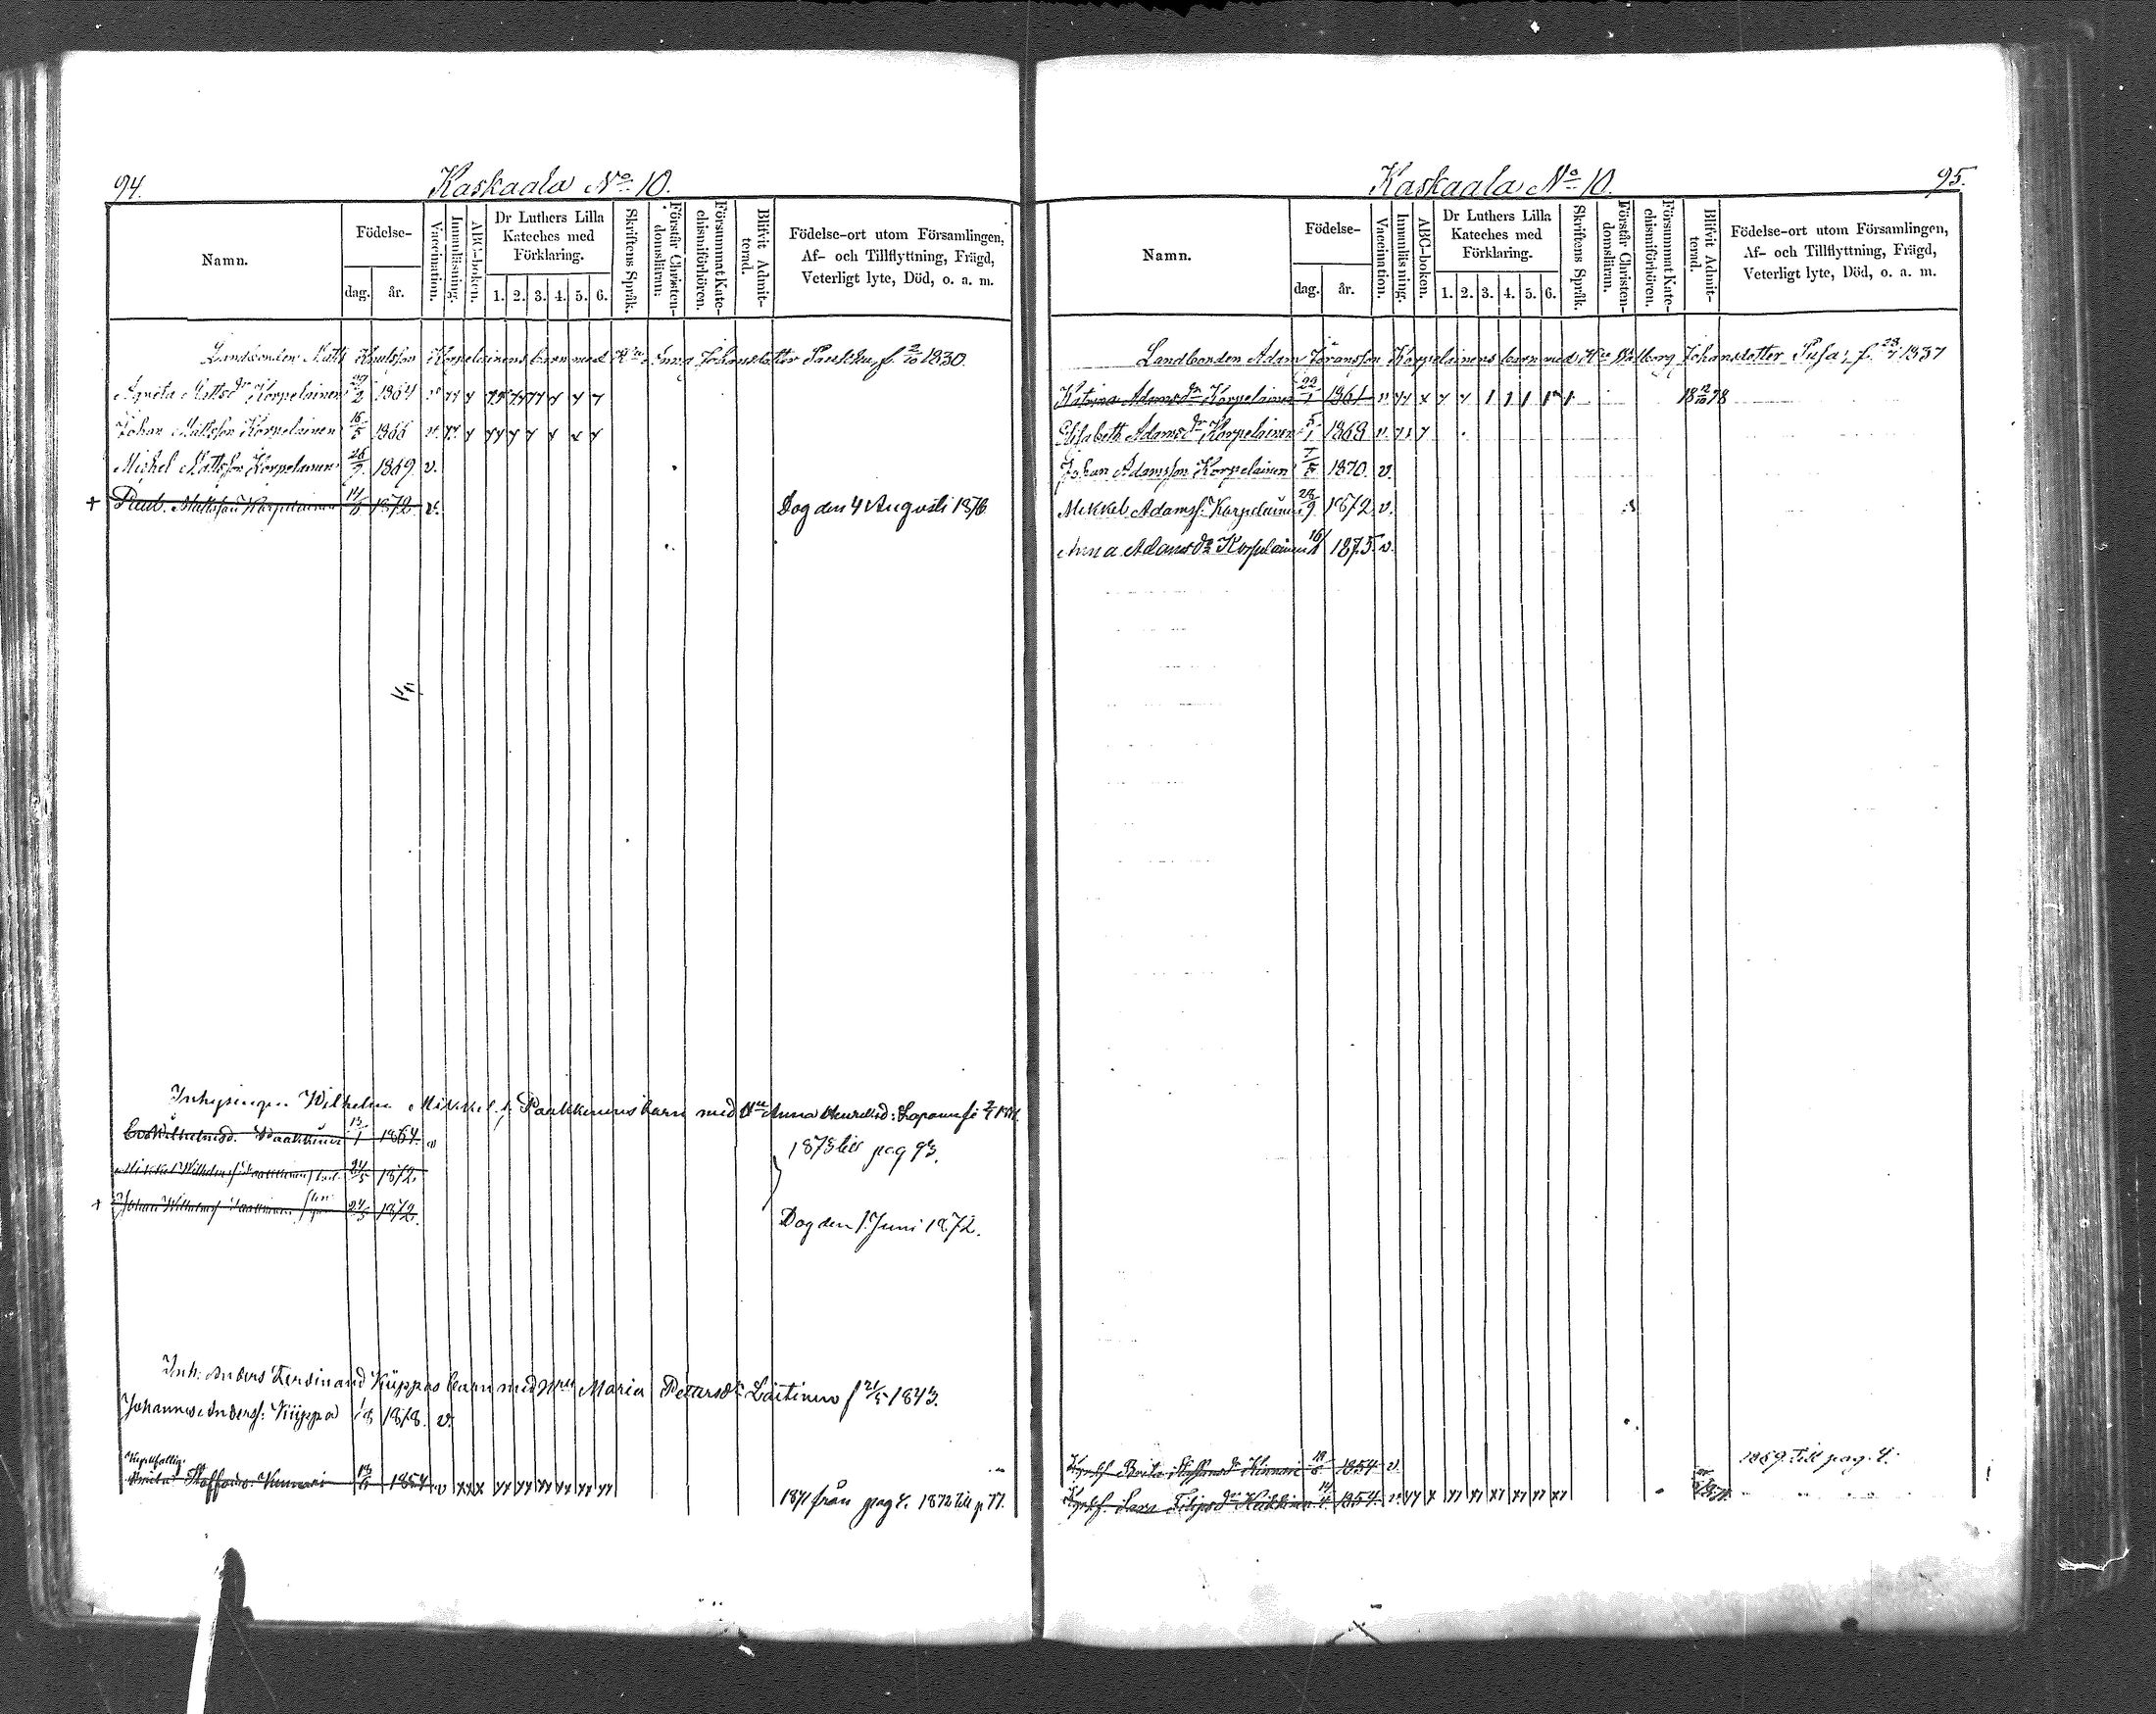 94.
Kaskaala No 10.
Namn.
Födelse-
dag.
år.
Vaccination.
Innanläsning.
ABC-boken.
Dr Luthers Lilla
Kateches med
Förklaring.
1. 2. 3. 4. 5. 6.
Skriftens Språk.
Förstår Christen-
domsläran.
Försummat Kate-
chismiförhören.
Blifvit Admit-
terad.
Födelse-ort utom Församlingen,
Af- och Tillflyttning, Frägd,
Veterligt lyte, Död, o. a. m.
Landbonden Matts Korpelainens barn med Johansdotter f. 2/10 1830.
Agneta Mattsdr Korpelainen 27/2 1864
Johan Mattsson Korpelainen 16/5 1866
Michel Mattsson Korpelainen 26/9 1869 v.
+ Paul Mattsson Korpelainen 1872 v. Dog den 4 Augusti 1876
Inhysingen Wilhelm Mikkels. Paakkunens barn med Hu Anna
Eva Wilhelmsd. Paakkunen 13/1 1864 v 1873 till pag 93.
Mikkel Wilhelms. Paakkunen 24/5 1872.
+ Johan Wilhelms. Paakkunen 24/5 1872. Dog den 1 Juni 1872.
Inh: Anders Ferdinand Küppas barn med Hru Maria Petersdr Laitinen f 21/5 1843.
Johannes Anderss: Küppa 1878. v.
Kyrkfattig.
Brita Staffansd. Kinnari 1854 v xx x xx xx xx xx xx xx 1871 från pag 4. 1872 till p 77.
Kaskaala No 10.
95.
Namn.
Födelse-
dag.
år.
Vaccination.
Innanläsning.
ABC-boken.
Dr Luthers Lilla
Kateches med
Förklaring.
1. 2. 3. 4. 5. 6.
Skriftens Språk.
Förstår Christen-
domsläran.
Försummat Kate-
chismiförhören.
Blifvit Admit-
terad.
Födelse-ort utom Församlingen,
Af- och Tillflyttning, Frägd,
Veterligt lyte, Död, o. a. m.
Landbonden Adam Göransson Korpelainens barn med Hru Walborg Johansdotter Pusa, f. 1837
Katrina Adamsdr Korpelainen 22/1 1861 18 12/10 78
Elisabeth Adamsdr Korpelainen 5/1 1868 v.
Johan Adamsson Korpelainen 1870. v.
Mikkel Adamss. Korpelainen 28/9 1872 v.
Anna Adamsdr Korpelainen 1875 v.
Kyrkf. Brita Staffansdr Kinnari 1854 v. 1869 till pag. 4.
Kyrkf. Sara Filipsdr 1854.